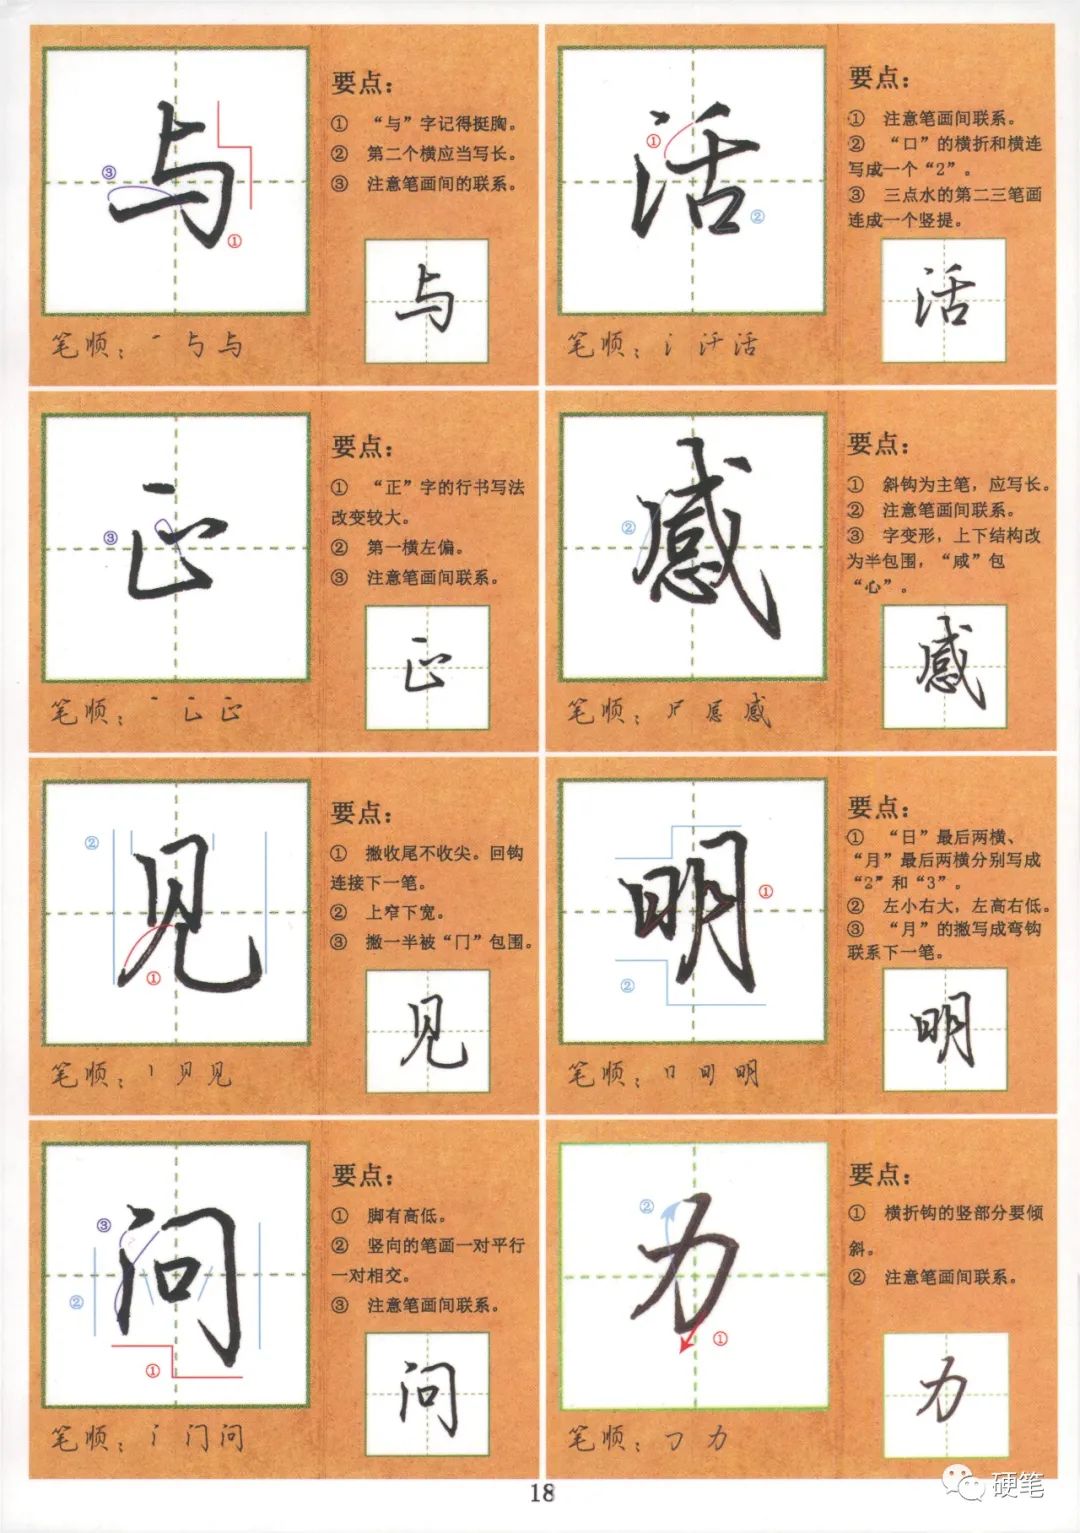 与
要点：
① “与”字记得挺胸。
② 第二个横应当写长。
③ 注意笔画间的联系。
③
①
与
笔顺：一 与 与
活
要点：
① 注意笔画间联系。
② “口”的横折和横连
写成一个“2”。
③ 三点水的第二三笔画
连成一个竖提。
①
②
活
笔顺：氵 汘 活
正
要点：
① “正”字的行书写法
改变较大。
② 第一横左偏。
③ 注意笔画间联系。
③
正
笔顺：正
感
要点：
① 斜钩为主笔，应写长。
② 注意笔画间联系。
③ 字变形，上下结构改
为半包围，“咸”包
“心”。
②
感
笔顺：感
见
要点：
① 撇收尾不收尖。回钩
连接下一笔。
② 上窄下宽。
③ 撇一半被“冂”包围。
②
①
见
笔顺：丨 贝 见
明
要点：
① “日”最后两横、
“月”最后两横分别写成
“2”和“3”。
② 左小右大，左高右低。
③ “月”的撇写成弯钩
联系下一笔。
①
②
明
笔顺：明
问
要点：
① 脚有高低。
② 竖向的笔画一对平行
一对相交。
③ 注意笔画间联系。
③
②
①
问
笔顺：门 问
力
要点：
① 横折钩的竖部分要倾
斜。
② 注意笔画间联系。
②
①
力
笔顺：㇆ 力
18
硬笔